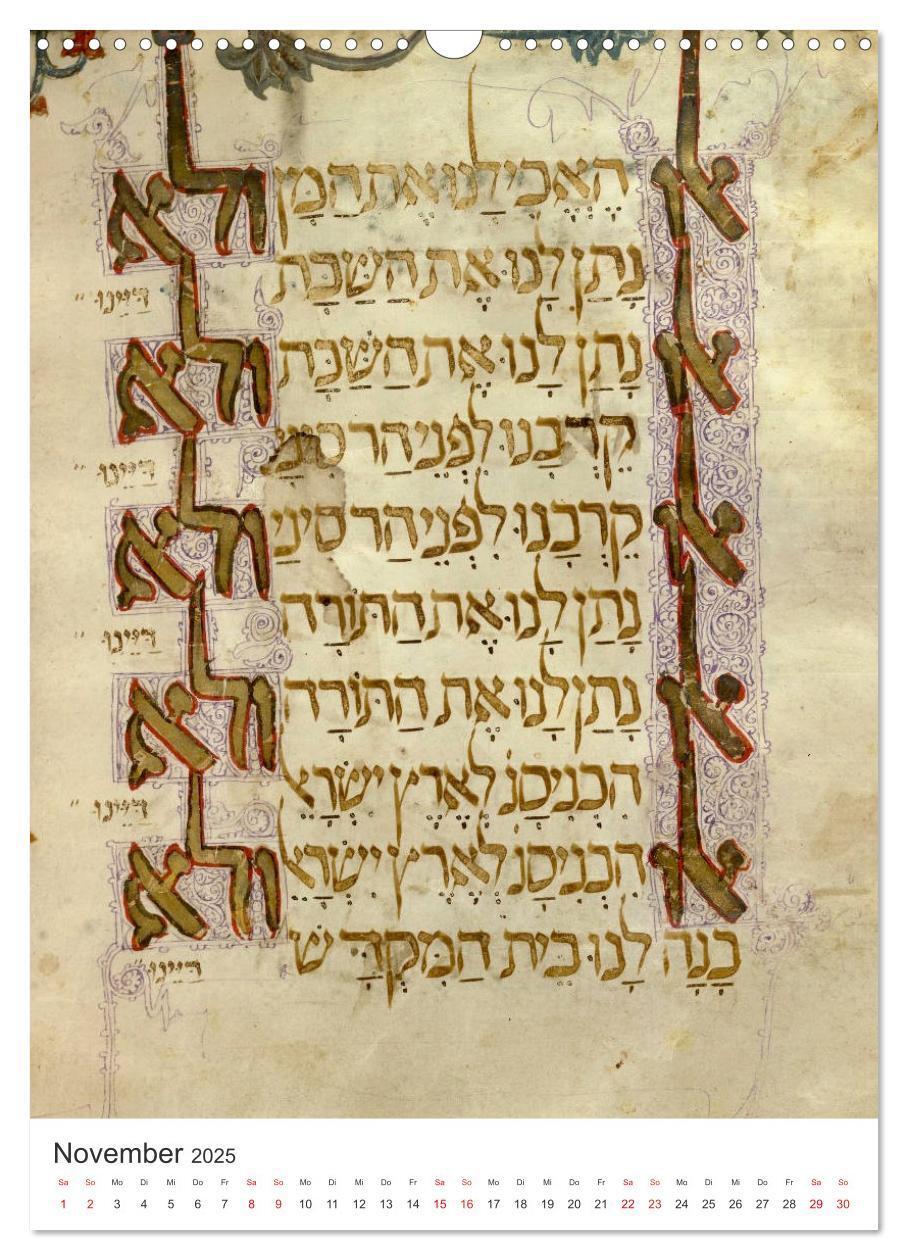 אלו הֶאֱכִילָנוּ אֶת הַמָּן ולא
נָתַן לָנוּ אֶת הַשַּׁבָּת דַּיֵּינוּ
אלו נָתַן לָנוּ אֶת הַשַּׁבָּת ולא
קֵרְבָנוּ לִפְנֵי הַר סִינַי דַּיֵּינוּ
אלו קֵרְבָנוּ לִפְנֵי הַר סִינַי ולא
נָתַן לָנוּ אֶת הַתּוֹרָה דַּיֵּינוּ
אלו נָתַן לָנוּ אֶת הַתּוֹרָה ולא
הִכְנִיסָנ לְאֶרֶץ יִשְׂרָא דַּיֵּינוּ
אלו הִכְנִיסָנ לְאֶרֶץ יִשְׂרָא ולא
בָּנָה לָנוּ בֵּית הַמִּקְדָּשׁ דַּיֵּינוּ
November 2025
Sa So Mo Di Mi Do Fr Sa So Mo Di Mi Do Fr Sa So Mo Di Mi Do Fr Sa So Mo Di Mi Do Fr Sa So
1 2 3 4 5 6 7 8 9 10 11 12 13 14 15 16 17 18 19 20 21 22 23 24 25 26 27 28 29 30